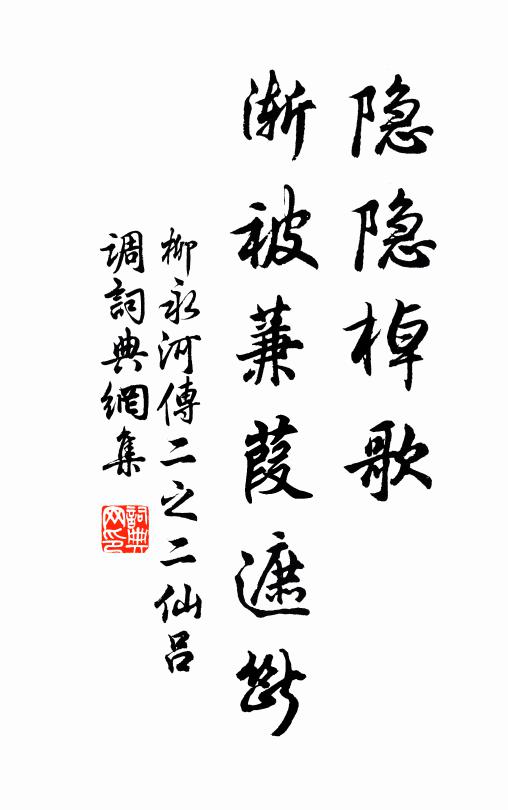 隐隐棹歌
渐被蒹葭遮断
柳永河傳二之二仙吕
调詞典網集
詞典
网印